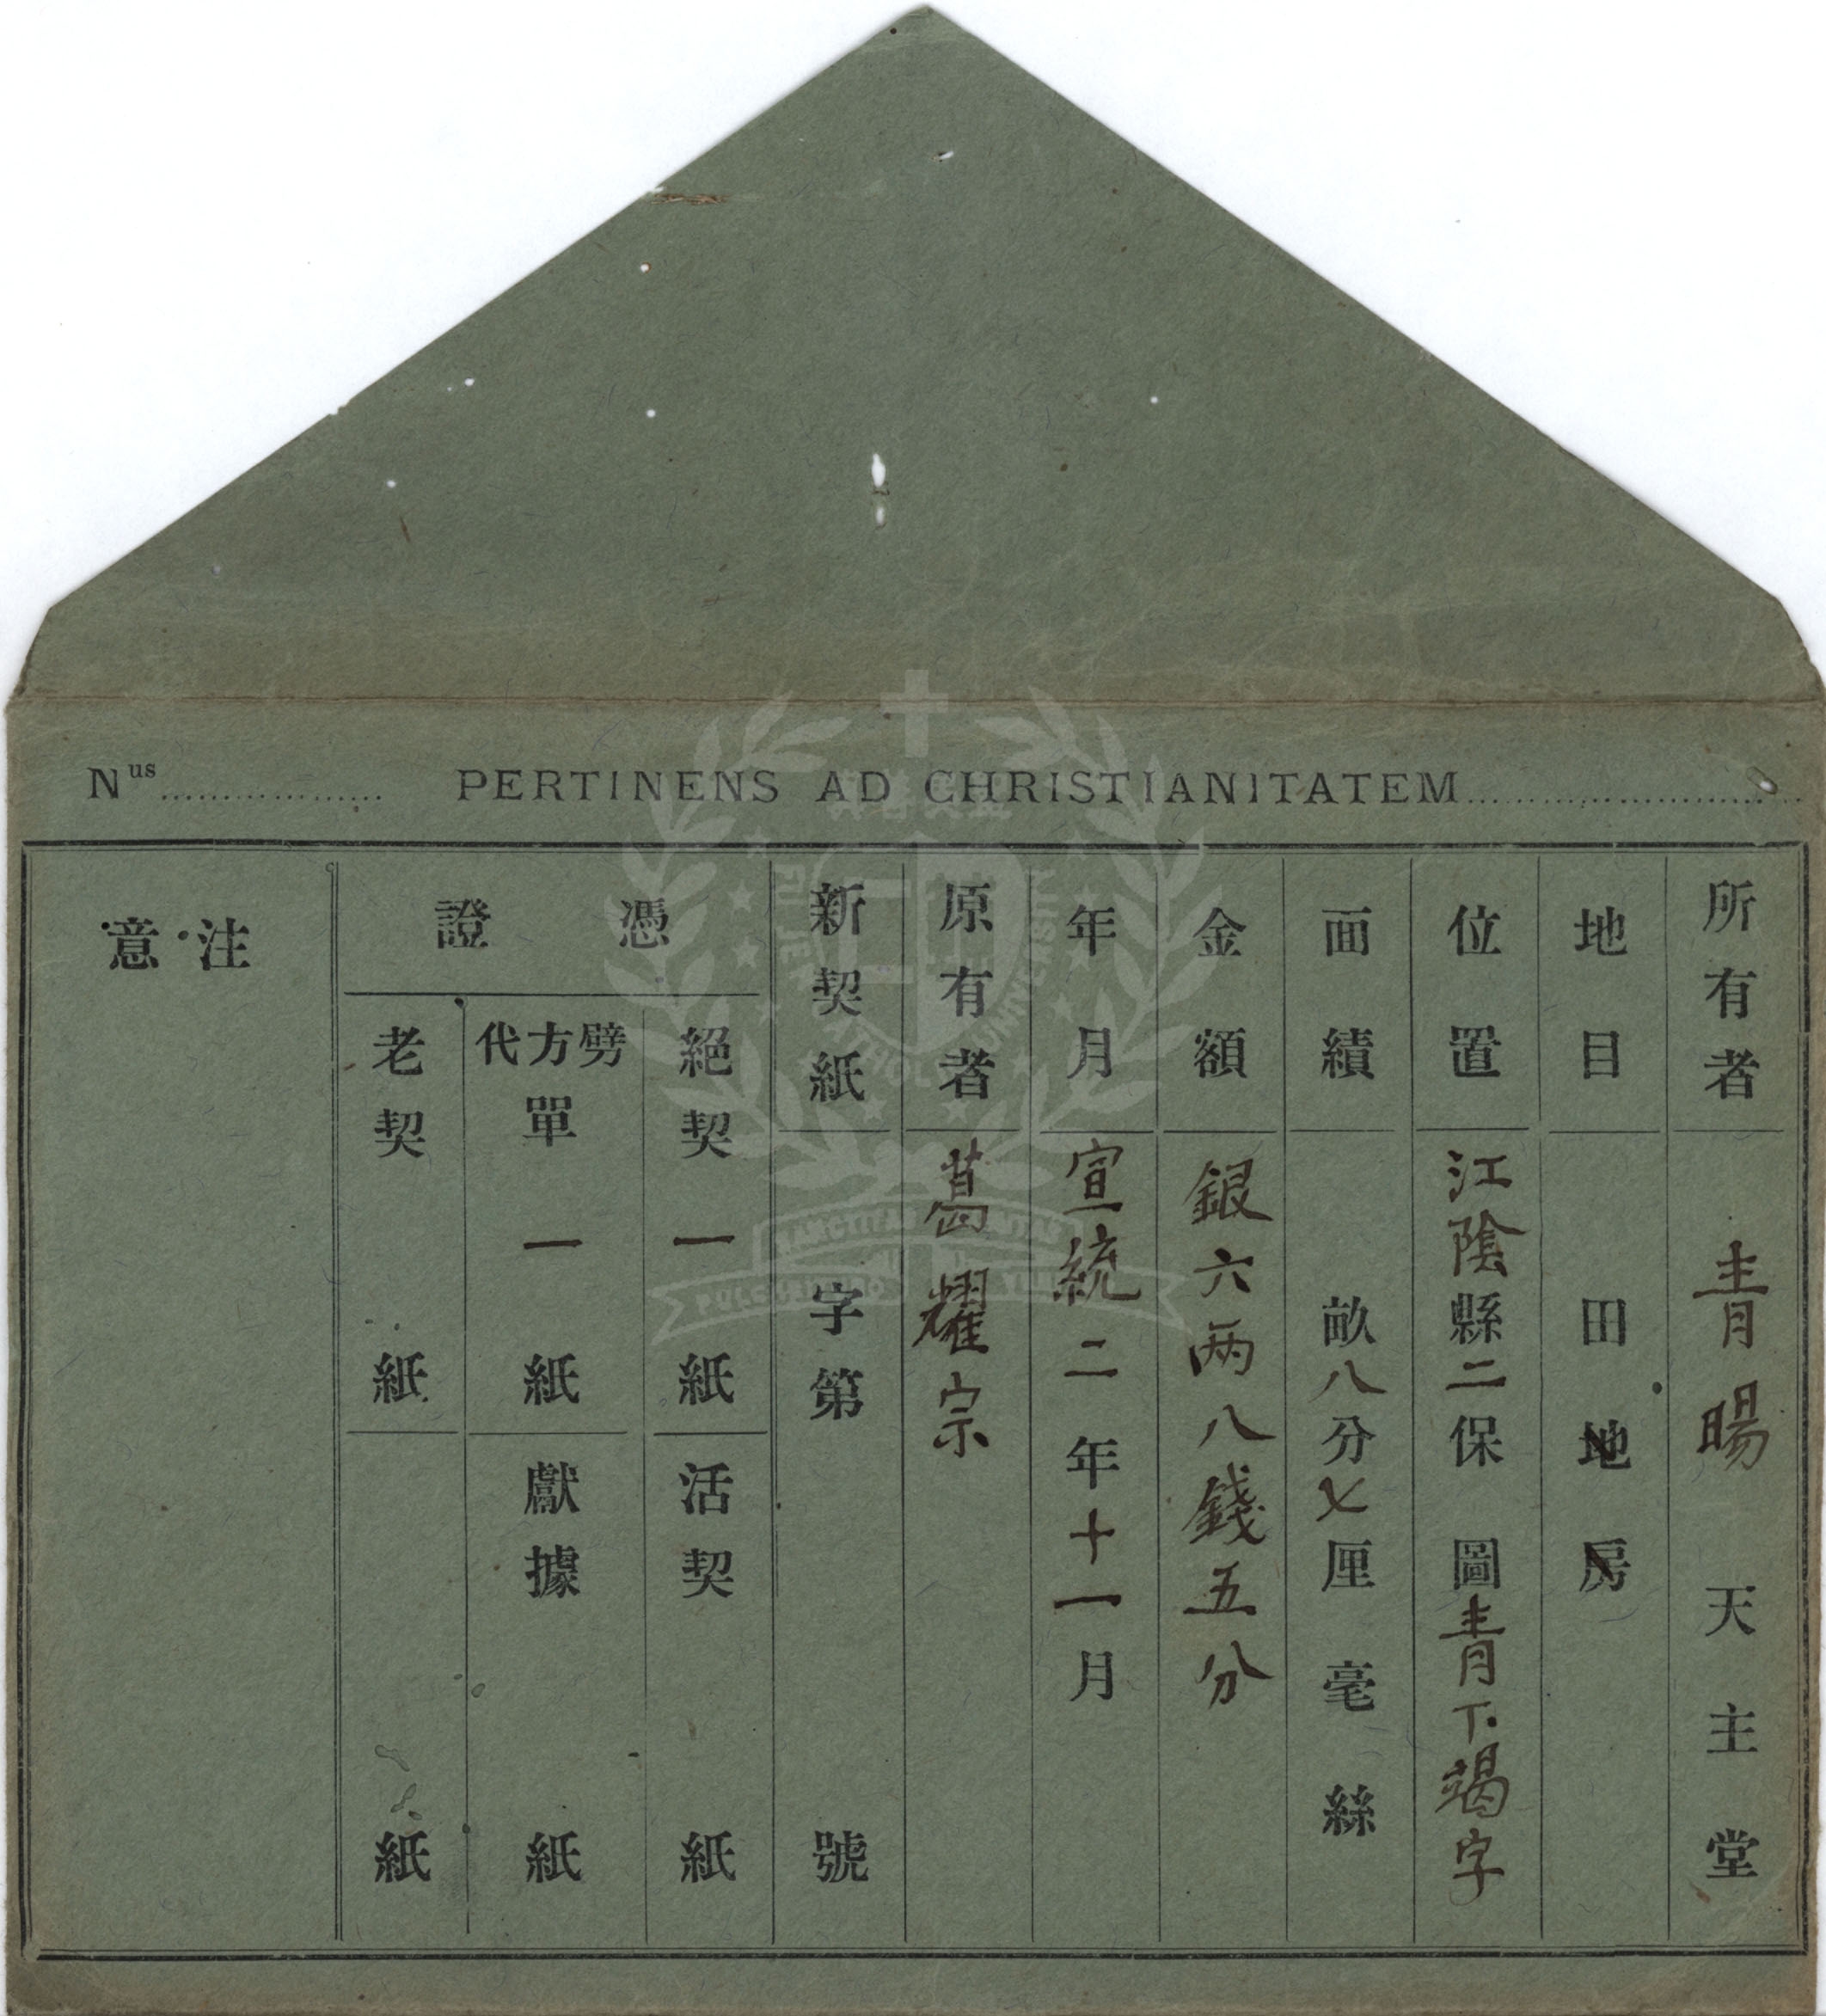 Nus.................. PERTINENS AD CHRISTIANITATEM...........................
所有者 青暘天主堂
地目 田地房
位置 江陰縣二保 圖青下竭字
面績 畝八分〤厘毫絲
金額 銀六兩八錢五分
年月 宣統二年十一月
原有者 葛耀宗
新契紙 字第 號
憑證
絕契 一紙
活契 紙
劈方代單 一紙
獻據 紙
老契 紙
紙
注意